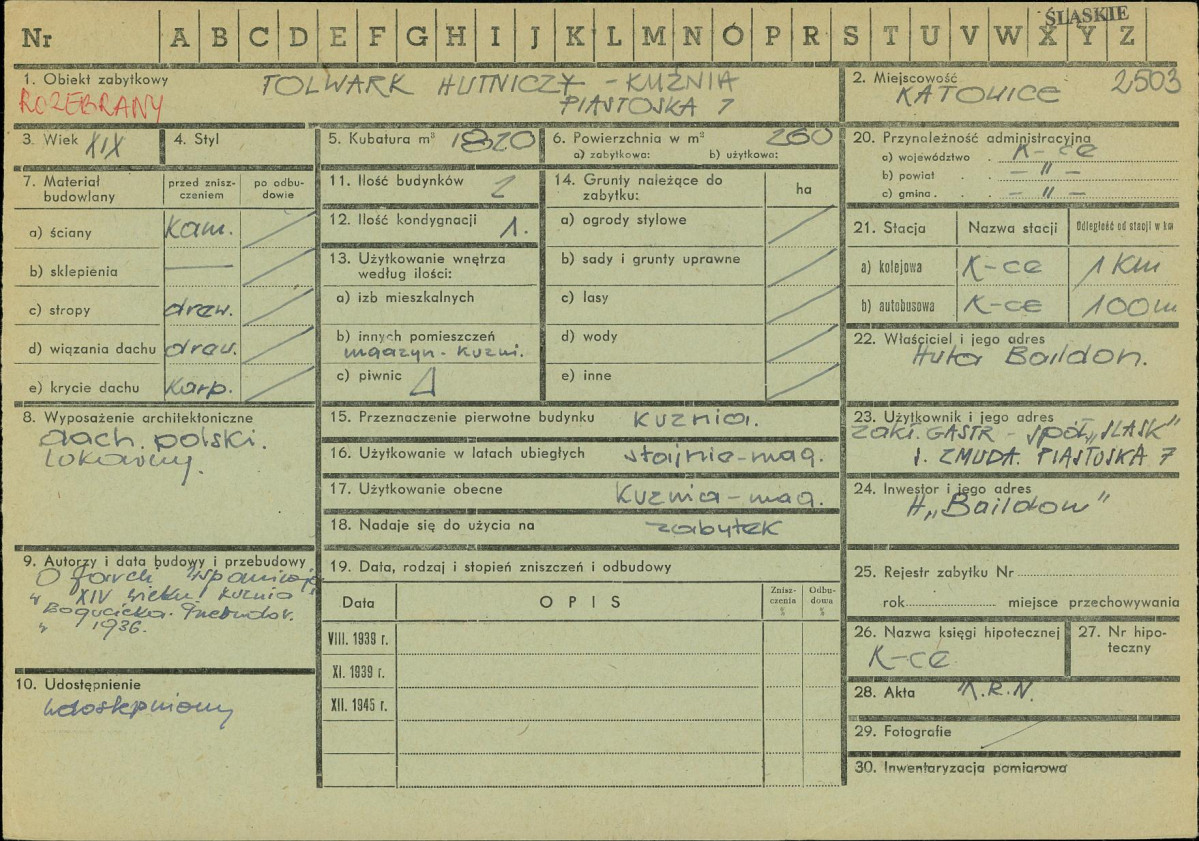 ŚLĄSKIE
Nr A B C D E F G H I J K L M N Ó P R S T U V W X Y Z
1. Obiekt zabytkowy TOLWARK HUTNICZY - KUŹNIA
ROZEBRANY PIASTOSKA 7
2. Miejscowość 2503
KATOWICE
3. Wiek XIX
4. Styl
5. Kubatura m³ 1820
6. Powierzchnia w m² 260
a) zabytkowa: b) użytkowa:
7. Materiał budowlany
przed zniszczeniem
po odbudowie
a) ściany kam.
b) sklepienia —
c) stropy drew.
d) wiązania dachu drew.
e) krycie dachu karp.
8. Wyposażenie architektoniczne
dach. polski.
9. Autorzy i data budowy i przebudowy
XIV wieku kuznia
1936.
10. Udostępnienie
udostępniony
11. Ilość budynków 2
12. Ilość kondygnacji 1.
13. Użytkowanie wnętrza
według ilości:
a) izb mieszkalnych
b) innych pomieszczeń
magazyn. kuzni.
c) piwnic
14. Grunty należące do
zabytku:
ha
a) ogrody stylowe
b) sady i grunty uprawne
c) lasy
d) wody
e) inne
15. Przeznaczenie pierwotne budynku kuznia.
16. Użytkowanie w latach ubiegłych stajnie-mag.
17. Użytkowanie obecne Kuznica-mag.
18. Nadaje się do użycia na zabytek
19. Data, rodzaj i stopień zniszczeń i odbudowy
Data OPIS Zniszczenia % Odbudowa %
VIII. 1939 r.
XI. 1939 r.
XII. 1945 r.
20. Przynależność administracyjna
a) województwo . K-ce
b) powiat . . — " —
c) gmina . . — " —
21. Stacja Nazwa stacji Odległość od stacji w km
a) kolejowa K-ce 1 Km
b) autobusowa K-ce 100m
22. Właściciel i jego adres
Huta Baildon.
23. Użytkownik i jego adres
Zakł. GASTR - społ. „SLASK"
J. ZMUDA. PIASTOSKA 7
24. Inwestor i jego adres
H „Baildon"
25. Rejestr zabytku Nr
rok miejsce przechowywania
26. Nazwa księgi hipotecznej
K-ce
27. Nr hipoteczny
28. Akta K.R.N.
29. Fotografie
30. Inwentaryzacja pomiarowa